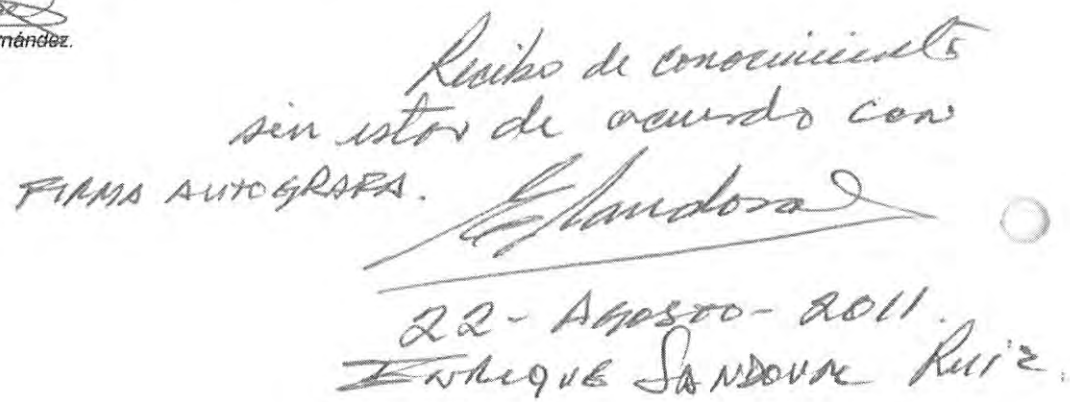 rnández.
Recibo de conocimiento
sin estar de acuerdo con
FIRMA AUTOGRAFA.
ESandoval
22-AGOSTO-2011.
ENRIQUE SANDOVAL Ruiz.